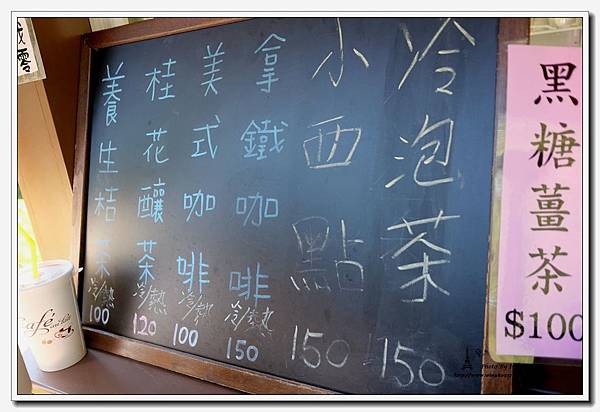 冷泡茶
150
小西點
150
拿鐵咖啡
冷/熱
150
美式咖啡
冷/熱
100
桂花釀茶
冷/熱
120
養生桔茶
冷/熱
100
黑糖薑茶
$100
零
Café